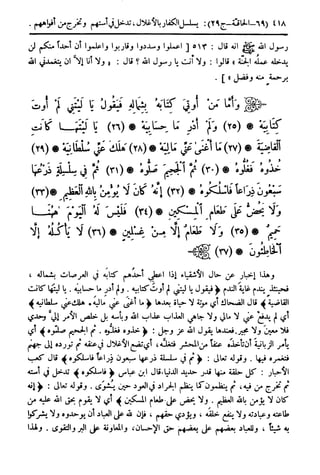 ٤١٨ (٦٩ - الحاقة - ج٢٩): يسلسل الكفار بالأغلال، تدخل في أستهم وتخرج من أفواههم.
رسول الله ﷺ أنه قال: ٥١٣ [ اعملوا وسددوا وقاربوا واعلموا أن أحداً منكم لن
يدخله عمله الجنة » قالوا: ولا أنت يا رسول الله ؟ قال: « ولا أنا إلا أن يتغمدني الله
برحمة منه وفضل » ].
وَأَمَّا مَنْ أُوتِيَ كِتَابَهُ بِشِمَالِهِ فَيَقُولُ يَا لَيْتَنِي لَمْ أُوتَ
كِتَابِيَهْ * (٢٥) وَلَمْ أَدْرِ مَا حِسَابِيَهْ * (٢٦) يَا لَيْتَهَا كَانَتِ
الْقَاضِيَةَ * (٢٧) مَا أَغْنَى عَنِّي مَالِيَهْ * (٢٨) هَلَكَ عَنِّي سُلْطَانِيَهْ * (٢٩)
خُذُوهُ فَغُلُّوهُ * (٣٠) ثُمَّ الْجَحِيمَ صَلُّوهُ * (٣١) ثُمَّ فِي سِلْسِلَةٍ ذَرْعُهَا
سَبْعُونَ ذِرَاعًا فَاسْلُكُوهُ * (٣٢) إِنَّهُ كَانَ لَا يُؤْمِنُ بِاللَّهِ الْعَظِيمِ * (٣٣)
وَلَا يَحُضُّ عَلَى طَعَامِ الْمِسْكِينِ * (٣٤) فَلَيْسَ لَهُ الْيَوْمَ هَهُنَا
حَمِيمٌ * (٣٥) وَلَا طَعَامٌ إِلَّا مِنْ غِسْلِينٍ * (٣٦) لَا يَأْكُلُهُ إِلَّا
الْخَاطِئُونَ * (٣٧)
وهذا إخبار عن حال الأشقياء إذا اعطي أحدهم كتابه في العرصات بشماله ،
فحينئذ يندم غاية الندم ﴿ فيقول يا ليتني لم أوت كتابيه . ولم أدر ما حسابيه . يا ليتها كانت
القاضية ﴾ قال الضحاك أي موتة لا حياة بعدها ﴿ ما أغنى عني ماليه. هلك عني سلطانيه ﴾
أي لم يدفع عني لا مالي ولا جاهي العذاب عذاب الله وبأسه بل خلص الأمر إلي وحدي
فلا معين ولا مجير. فعندها يقول الله عز وجل: ﴿ خذوه فغلوه. ثم الجحيم صلوه ﴾ أي
يأمر الزبانية أن تأخذه عنفاً من المحشر فتغله، أي تضع الأغلال في عنقه ثم تورده إلى جهنم
فتغمره فيها . وقوله تعالى: ﴿ ثم في سلسلة ذرعها سبعون ذراعاً فاسلكوه ﴾ قال كعب
الأحبار : كل حلقة منها قدر حديد الدنيا، قال ابن عباس ﴿ فاسلكوه ﴾ تدخل في أسته
ثم تخرج من فيه، ثم ينظمون كما ينظم الجراد في العود حين يُشوى. وقوله تعالى: ﴿ إنه
كان لا يؤمن بالله العظيم . ولا يحض على طعام المسكين ﴾ أي لا يقوم بحق الله عليه من
طاعته وعبادته ولا ينفع خلقه، ويؤدي حقهم ، فإن لله على العباد أن يوحدوه ولا يشركوا
به شيئاً ، وللعباد بعضهم على بعضهم حق الإحسان، والمعاونة على البر والتقوى. ولهذا